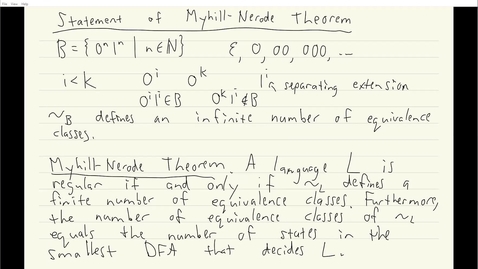 Statement of Myhill-Nerode Theorem
B = { 0ⁿ1ⁿ | n∈ℕ} ε, 0, 00, 000, ...
i < k 0ⁱ 0ᵏ 1ⁱ separating extension
0ⁱ1ⁱ ∈ B 0ᵏ1ⁱ ∉ B
~_B defines an infinite number of equivalence
classes.
Myhill-Nerode Theorem. A language L is
regular if and only if ~_L defines a
finite number of equivalence classes. Furthermore,
the number of equivalence classes of ~_L
equals the number of states in the
smallest DFA that decides L.